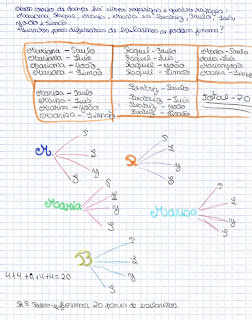 Numa escola de dança há cinco raparigas e quatro rapazes:
Mariana, Raquel, Maria, Marisa e Beatriz, Paulo, Luís,
João e Simão.
Quantos pares diferentes de bailarinos se podem formar?
Mariana - Paulo
Mariana - Luís
Mariana - João
Mariana - Simão
Raquel - Paulo
Raquel - Luís
Raquel - João
Raquel - Simão
Maria - Paulo
Maria - Luís
Maria - João
Maria - Simão
Marisa - Paulo
Marisa - Luís
Marisa - João
Marisa - Simão
Beatriz - Paulo
Beatriz - Luís
Beatriz - João
Beatriz - Simão
Total - 20
M.
R
Maria
Marisa
B
4+4+4+4+4=20
R = Podem-se formar 20 pares de bailarinos.